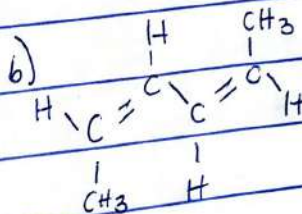 b)
H CH3
C C
H C C H
CH3 H